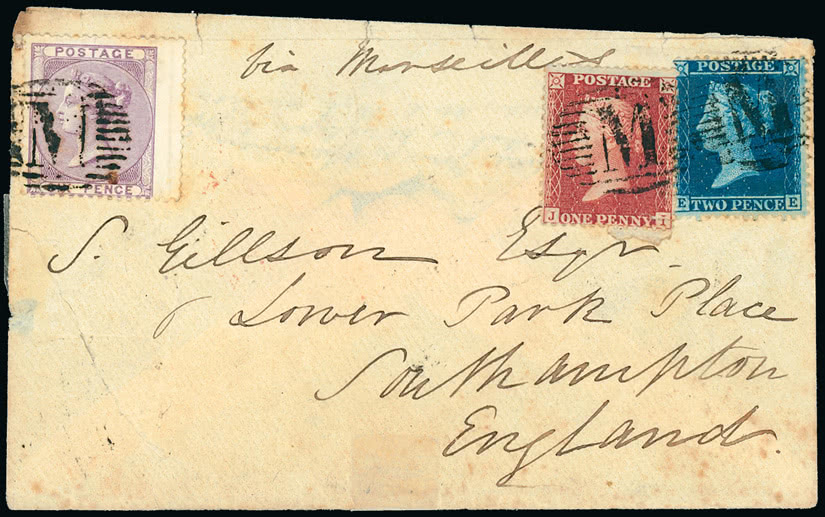 via Marseilles
POSTAGE
PENCE
M
POSTAGE
J I
ONE PENNY
M
POSTAGE
E E
TWO PENCE
M
S. Gillson Esqr.
Lower Park Place
Southampton
England.